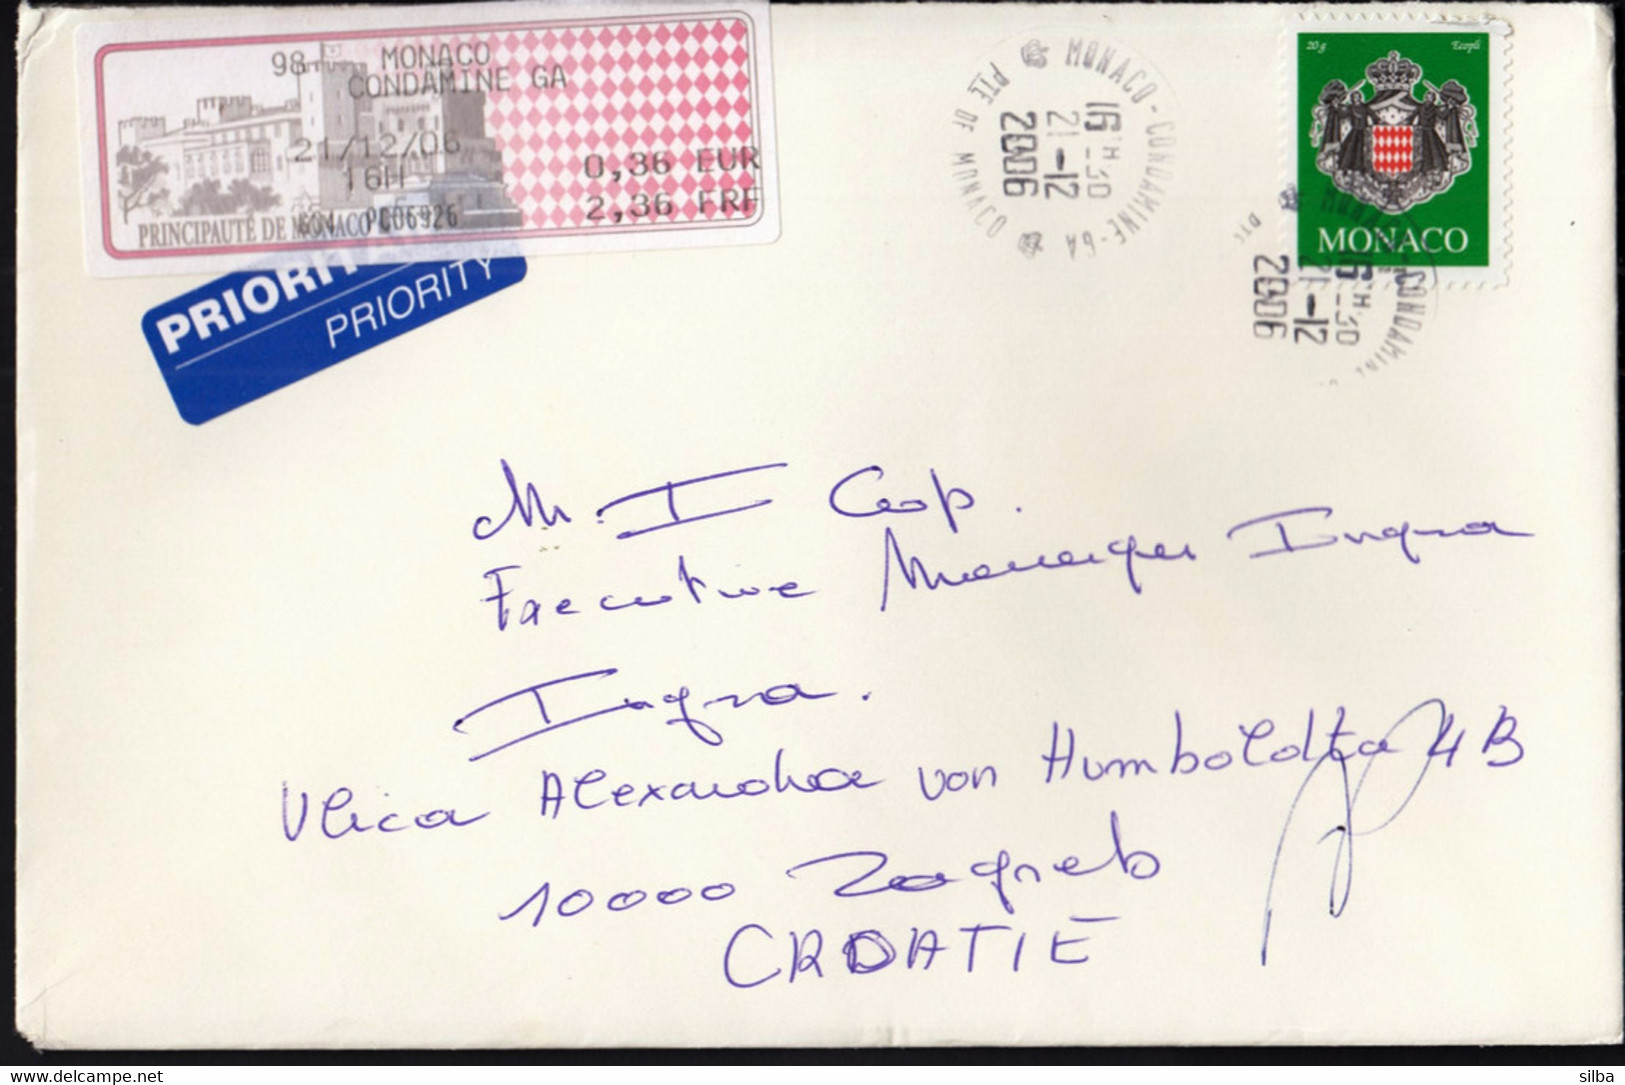 98 MONACO
CONDAMINE GA
21/12/06
16H
0,36 EUR
2,36 FRF
PC06926
PRINCIPAUTÉ DE MONACO
PRIORITY
MONACO-CONDAMINE-GA
PTE DE MONACO
16H30
21-12
2006
20 g Ecopli
MONACO
16H30
21-12
2006
Mr. I
Executive Manager Ingra
Ingra.
Ulica Alexandra von Humboldta 4B
10000 Zagreb
CROATIE
delcampe.net
silba